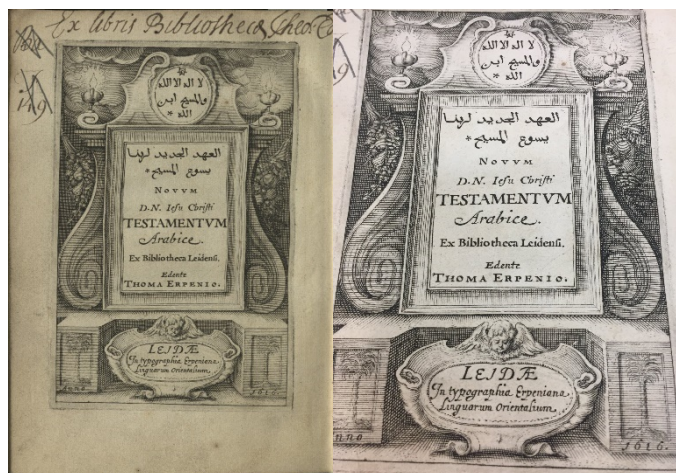 Ex libris Bibliothecæ
لا اله الا الله
والمسيح ابن
الله *
العهد الجديد لربنا
يسوع المسيح *
NOVVM
D.N. Iesu Christi
TESTAMENTVM
Arabice.
Ex Bibliotheca Leidensi.
Edente
THOMA ERPENIO.
LEIDÆ
In typographia Erpeniana
Linguarum Orientalium.
1616.
لا اله الا الله
والمسيح ابن
الله *
العهد الجديد لربنا
يسوع المسيح *
NOVVM
D.N. Iesu Christi
TESTAMENTVM
Arabice.
Ex Bibliotheca Leidensi.
Edente
THOMA ERPENIO.
LEIDÆ
In typographia Erpeniana
Linguarum Orientalium.
Anno 1616.